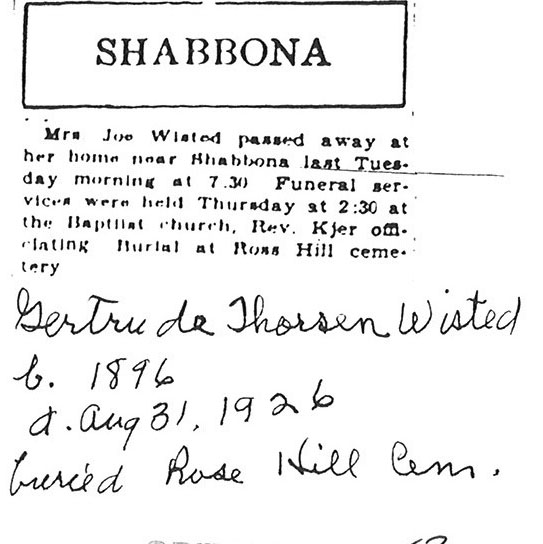 SHABBONA
Mrs Joe Wisted passed away at
her home near Shabbona last Tues-
day morning at 7.30 Funeral ser-
vices were held Thursday at 2:30 at
the Baptist church, Rev. Kjer offi-
ciating Burial at Ross Hill ceme-
tery
Gertrude Thorsen Wisted
b. 1896
d. Aug 31, 1926
buried Rose Hill Cem.